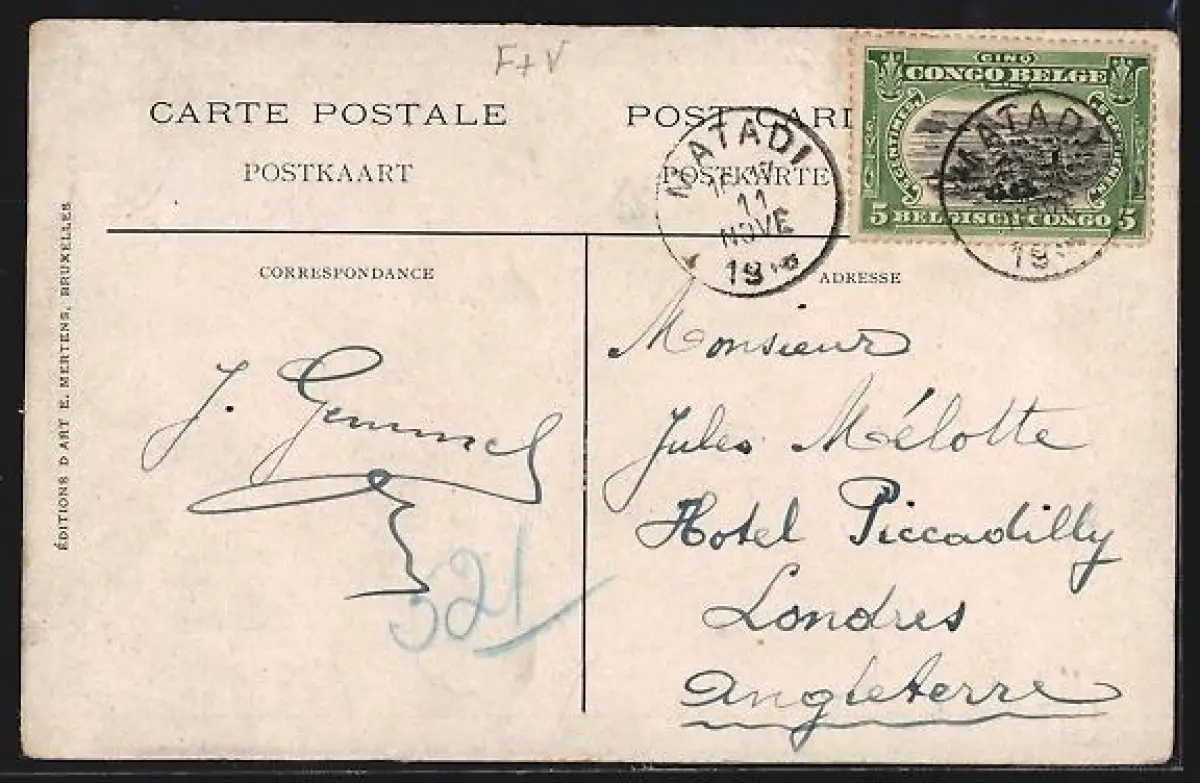 F+V
CARTE POSTALE
POST CARD
POSTKAART
POSTKARTE
CINQ
CONGO BELGE
CENTIMES
5 BELGISCH-CONGO 5
MATADI
11
NOVE
19
MATADI
19
CORRESPONDANCE
ADRESSE
ÉDITIONS D'ART E. MERTENS, BRUXELLES
J. Gemmel
321
Monsieur
Jules Mélotte
Hotel Piccadilly
Londres
Angleterre